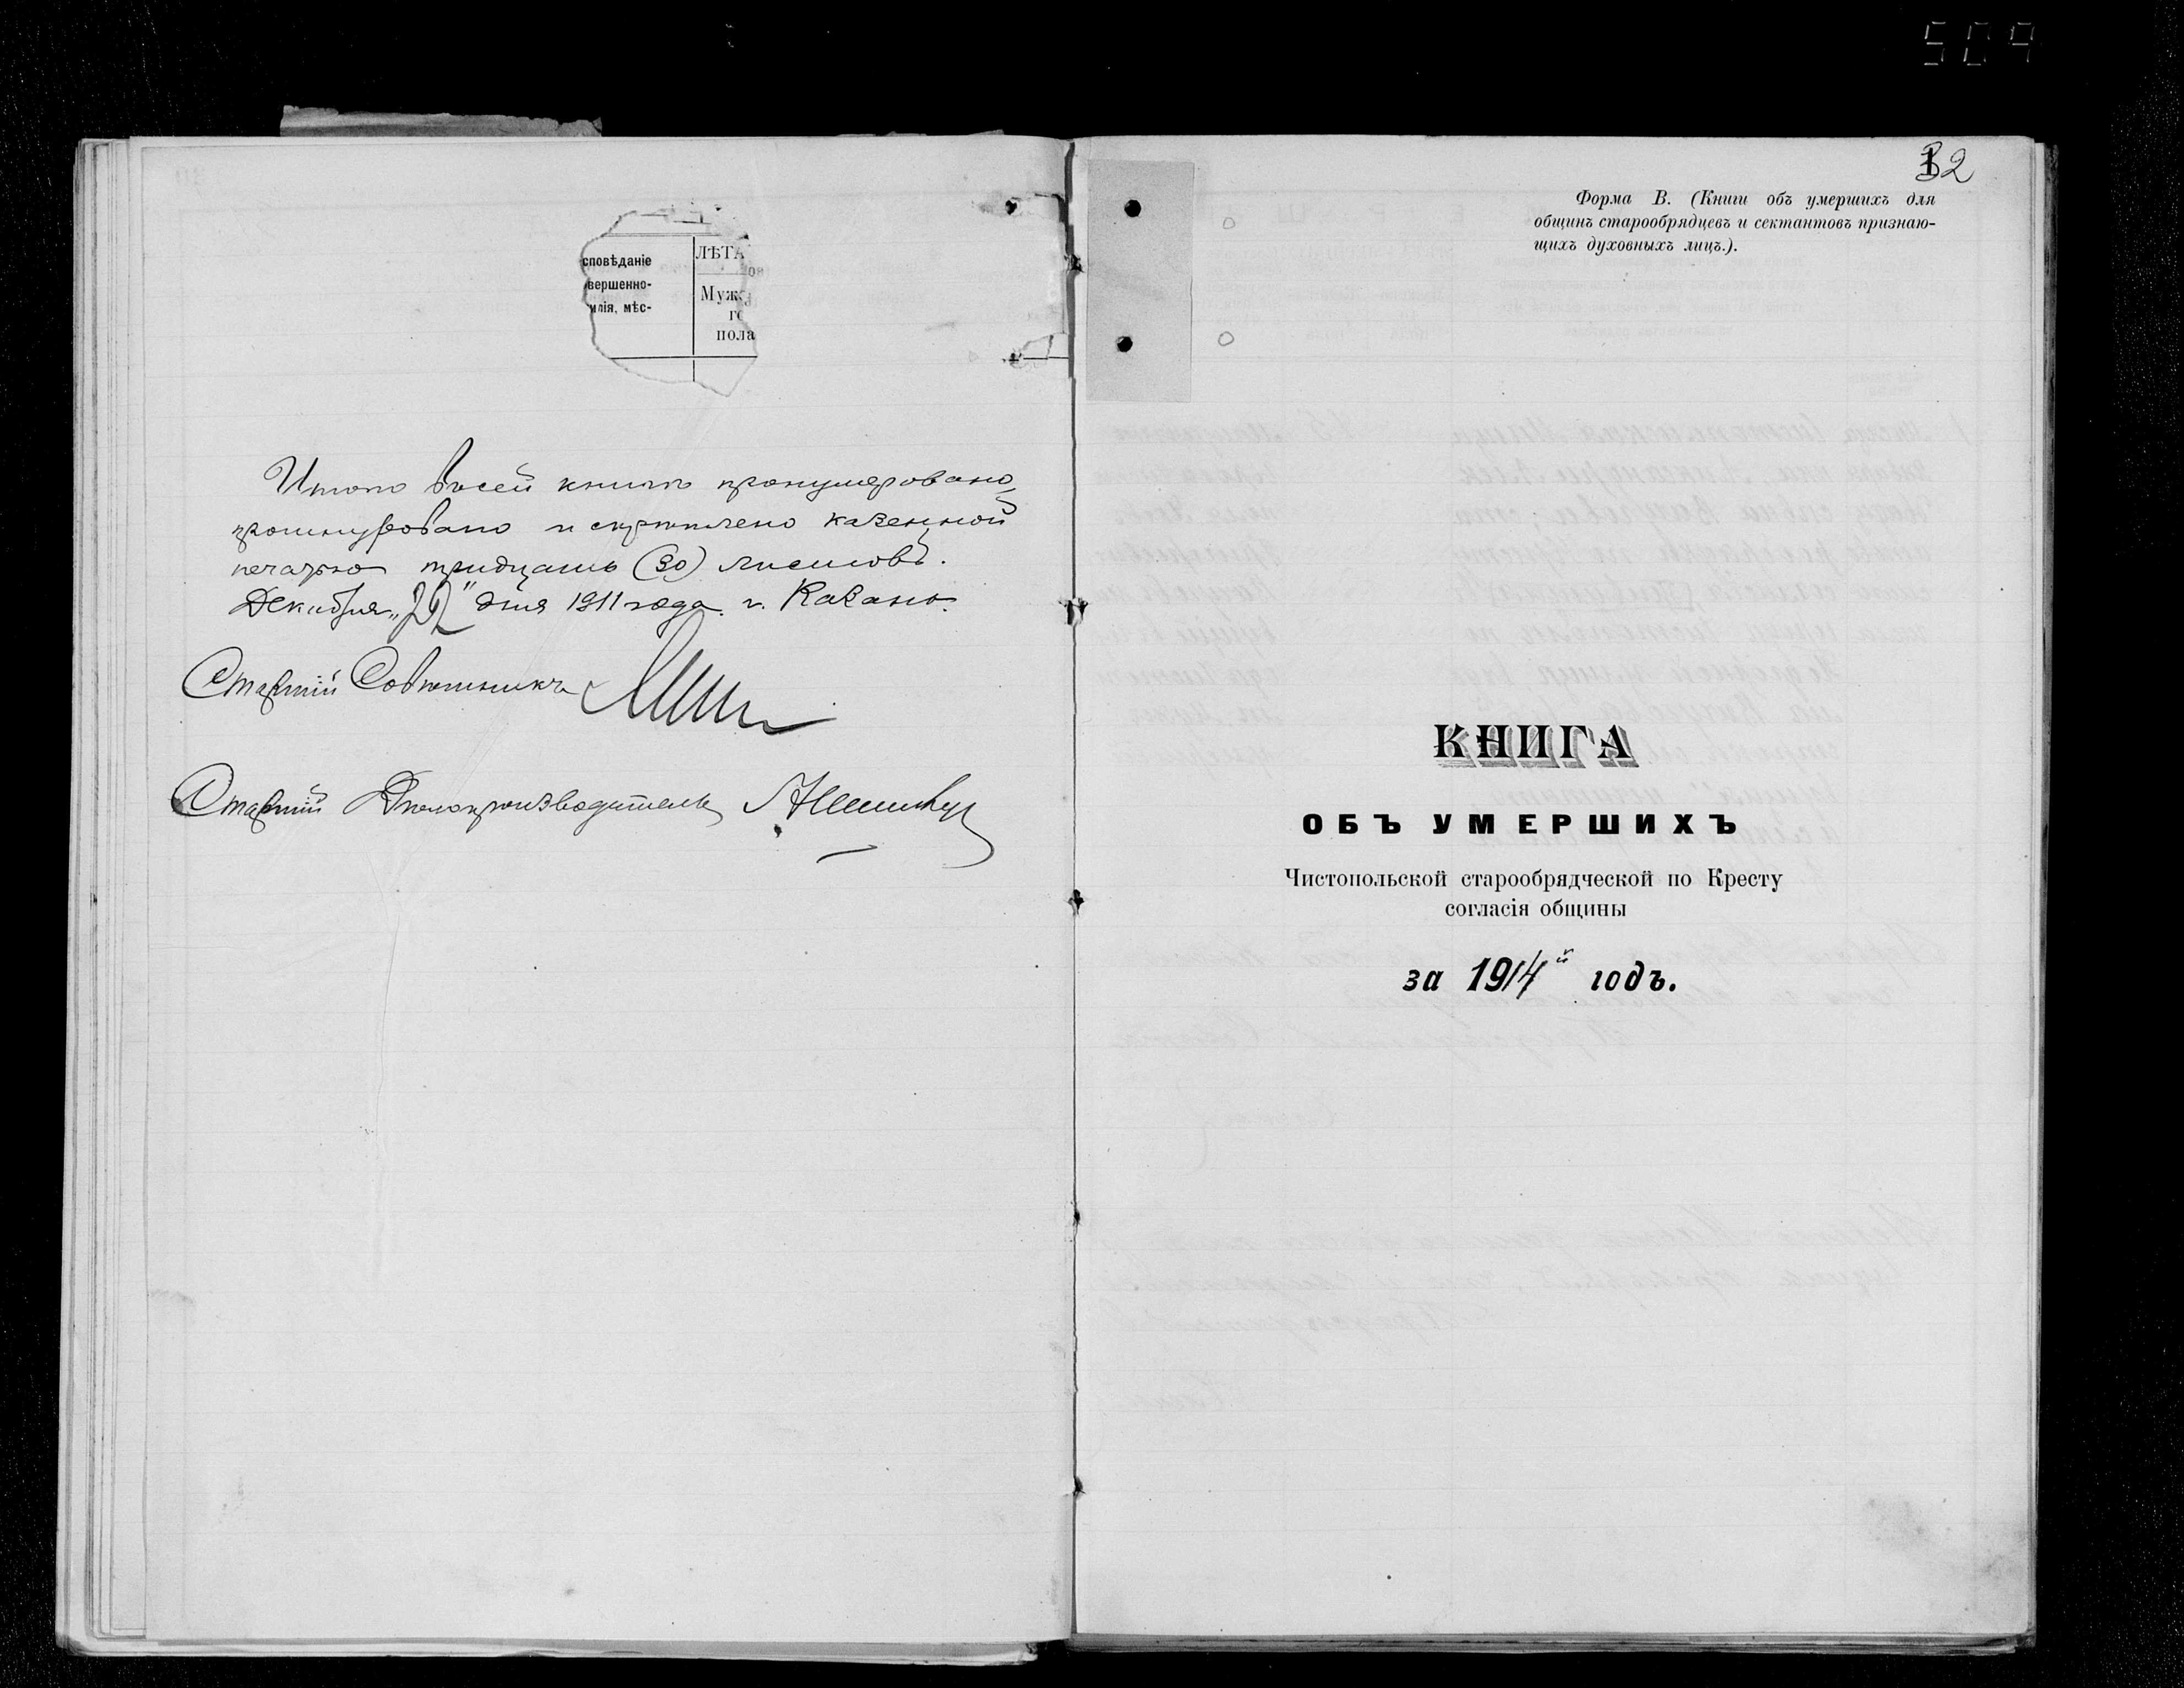 сповѣданіе
вершенно-
илія, мѣс-
ЛѢТА
Муж
го
пола
Итого въ сей книгѣ пронумеровано,
прошнуровано и скрѣплено казенной
печатью тридцать (30) листовъ.
Декабря „29" дня 1911 года. г. Казань.
Старшій Совѣтникъ
Старшій Дѣлопроизводитель
509
32
Форма В. (Книги объ умершихъ для
общинъ старообрядцевъ и сектантовъ признаю-
щихъ духовныхъ лицъ.).
КНИГА
ОБЪ УМЕРШИХЪ
Чистопольской старообрядческой по Кресту
согласія общины
за 1914й годъ.